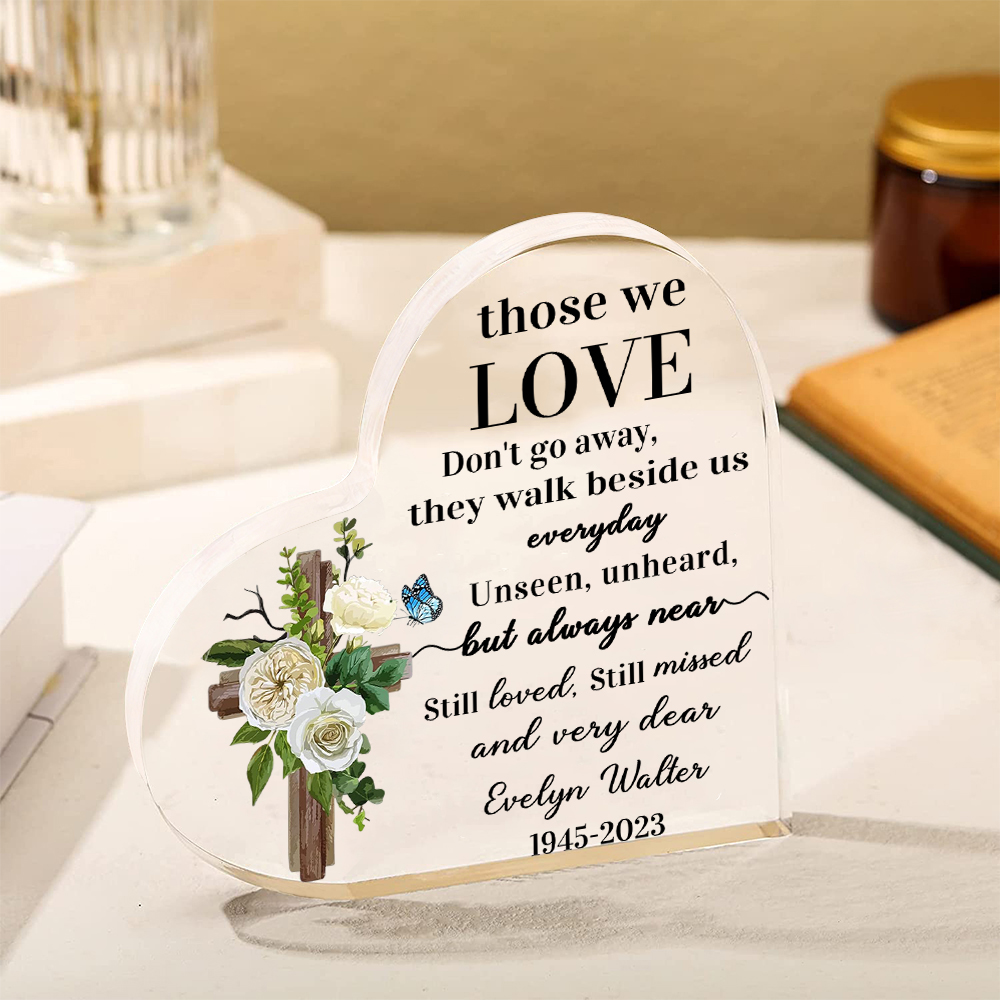 those we
LOVE
Don't go away,
they walk beside us
everyday
Unseen, unheard,
but always near
Still loved, Still missed
and very dear
Evelyn Walter
1945-2023